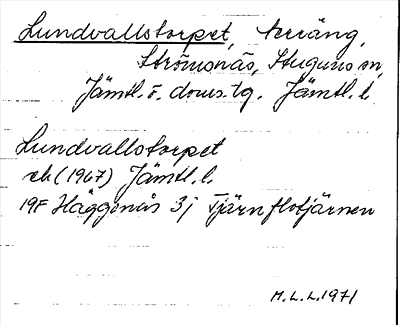 Lundvallstorpet, terräng,
Strömsnäs, Stuguns sn,
Jämtl. ö. doms.tg. Jämtl. l.
Lundvallstorpet
ek (1967) Jämtl. l.
19F Häggenås 3j Tjärnflotjärnen
M.L.L. 1971